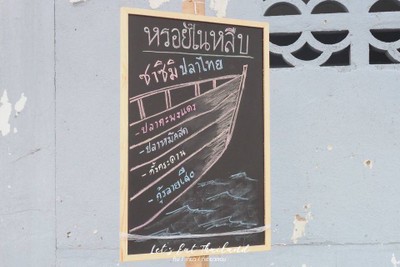 หรอยในหลืบ
ซาชิมิปลาไทย
- ปลากะพงแดง
- ปลาหมึกสด
- กั้งกระดาน
- กุ้งลายเสือ
Let's Eat Thailand